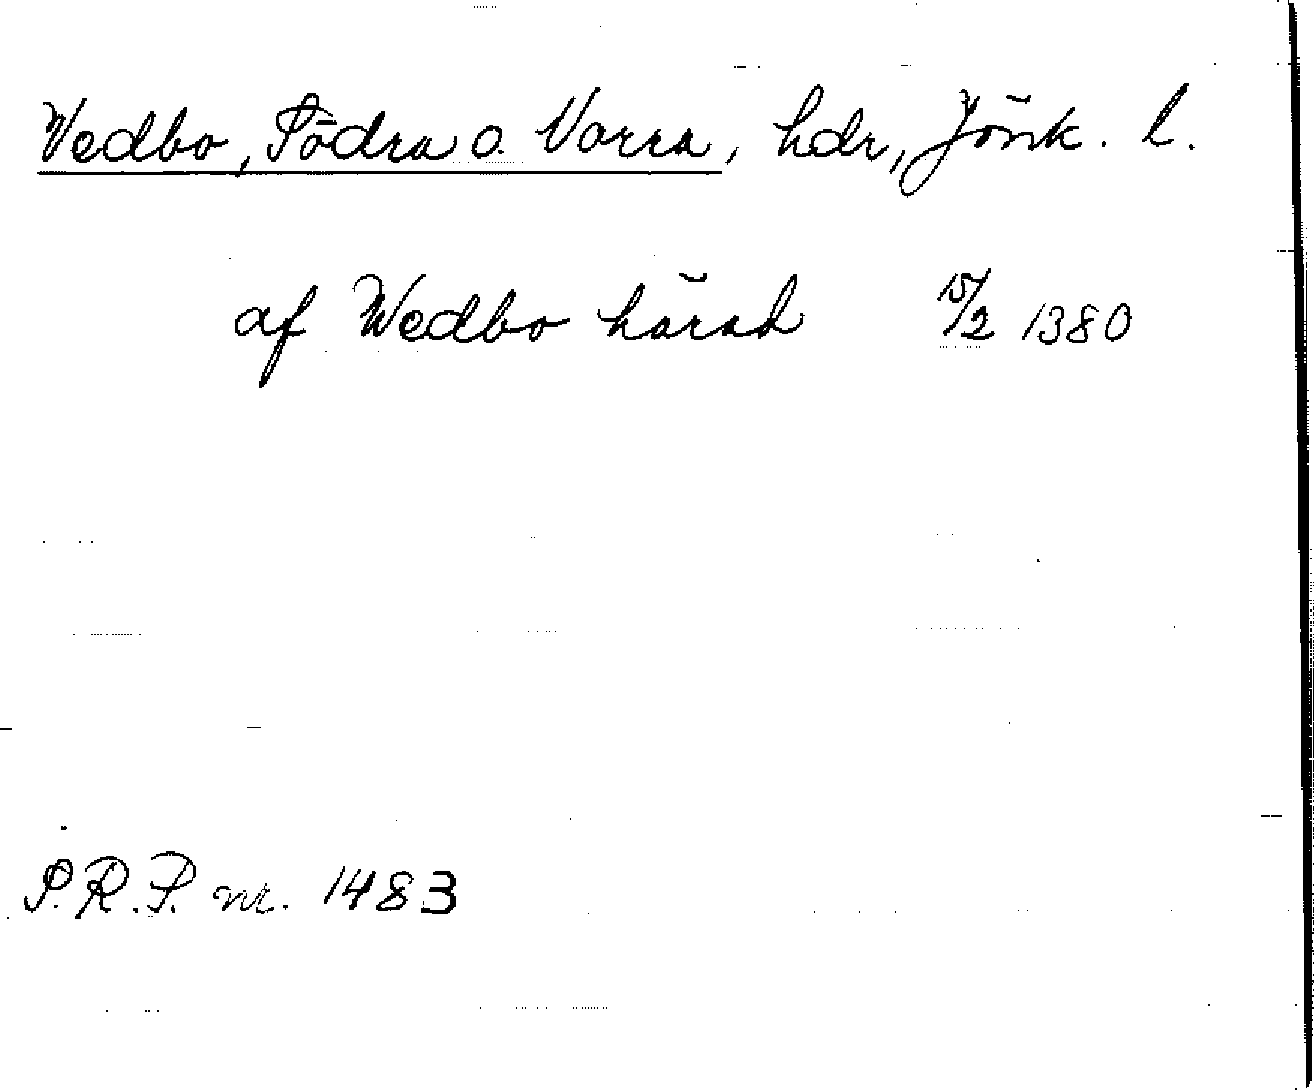 Vedbo, Södra o. Norra, hdr, Jönk. l.
af Wedbo häradh 15/2 1380
S.R.P. nr. 1483